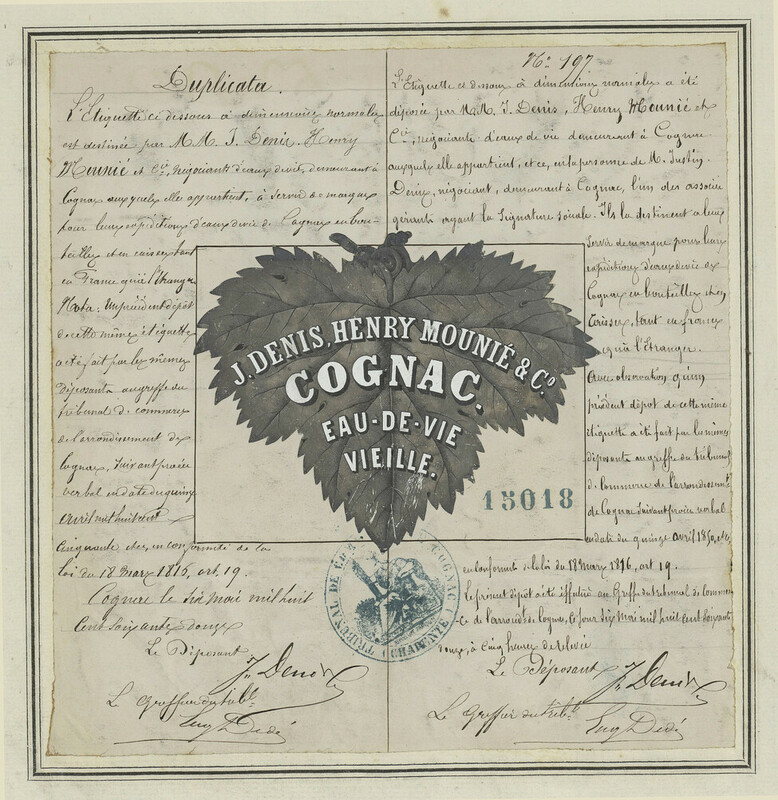 Duplicata.
L'Etiquette ci dessous à dimensions normales
est destinée par M.M. J. Denis, Henry
Mounié et Cie, négociants d'eaux de vie, demeurant à
Cognac auxquels elle appartient, à servir de marque
pour leurs expéditions d'eaux de vie de Cognac en bou-
teilles et en caisses, tant
en France qu'à l'étranger
Nota: Un précédent dépôt
de cette même étiquette
a été fait par les mêmes
déposants au greffe du
tribunal de commerce
de l'arrondissement de
Cognac, suivant procès
verbal en date du quinze
avril mil huit cent
cinquante etc, en conformité de la
loi du 18 mars 1816, art. 19.
Cognac le six mai mil huit
cent soixante douze
Le Déposant
J. Denis
Le Greffier du tribl.
Eug Dedé
No. 197
L'Etiquette ci dessous à dimensions normales a été
déposée par M.M. J. Denis, Henry Mounié et
Cie, négociants d'eaux de vie demeurant à Cognac
auxquels elle appartient, et ce, en la personne de M. Justin
Denis, négociant, demeurant à Cognac, l'un des associés
gérants ayant la signature sociale. Ils la destinent à leur
servir de marque pour leurs
expéditions d'eaux de vie de
Cognac en bouteilles et en
caisses, tant en france
qu'à l'Etranger.
Avec observation qu'un
précédent dépôt de cette même
étiquette a été fait par les mêmes
déposants au greffe du tribunal
de Commerce de l'arrondissement
de Cognac suivant procès verbal
en date du quinze avril 1850, etc,
en conformité de la loi du 18 mars 1816, art 19.
Le présent dépôt a été effectué au Greffe du tribunal de Commer-
ce de l'arrondt de Cognac, ce jour six mai mil huit cent soixante
douze, à cinq heures de relevée
Le Déposant
J. Denis
Le Greffier du trib.
Eug Dedé
J. DENIS, HENRY MOUNIÉ & Co.
COGNAC.
EAU-DE-VIE
VIEILLE.
15018
TRIBUNAL DE
COGNAC
CHARENTE